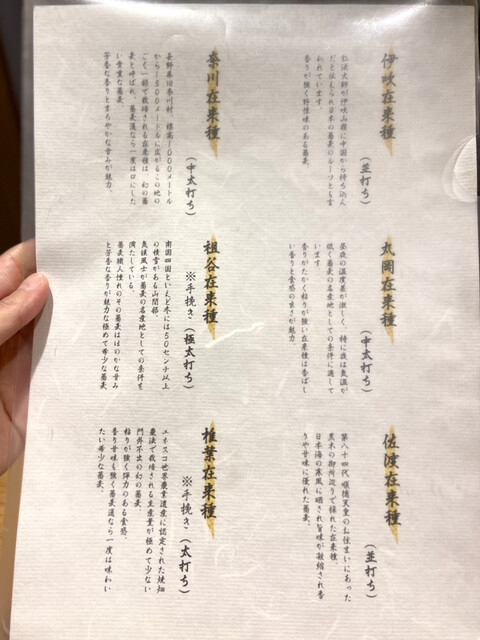 伊吹在来種
(並打ち)
伝教大師が伊吹山麓に中国から持ち込ん
だと伝えられ日本の蕎麦のルーツとも言
われています。
香りが強く野性味のある蕎麦。
丸岡在来種
(中太打ち)
昼夜の温度差が激しく、特に夜は気温が
低く蕎麦の名産地としての条件に適して
います
香りがたかく粘りが強い在来種は香ばし
い香りと食感の良さが魅力
佐渡在来種
(並打ち)
第八十四代 順徳天皇のお住まいにあった
黒木の御所辺りで採れた在来種。
日本海の寒風に晒され旨味が凝縮され香
りや甘味に優れた蕎麦。
奈川在来種
(中太打ち)
長野県旧奈川村、標高1000メートル
から1500メートルに広がるこの地の
ごく一部で栽培される在来種は、幻の蕎
麦と呼ばれ、蕎麦通なら一度は口にした
い貴重な蕎麦。
芳香な香りとまろやかな甘みが魅力。
祖谷在来種
※手挽き(極太打ち)
南国四国といえど冬には50センチ以上
の積雪がある山間部。
気候風土が蕎麦の名産地としての条件を
満たしている。
蕎麦職人憧れのその蕎麦はほのかな甘み
と芳香な香りが魅力な極めて希少な蕎麦。
椎葉在来種
※手挽き(太打ち)
ユネスコ世界農業遺産に認定された焼畑
農法で栽培される生産量が極めて少ない
門外不出の幻の蕎麦。
粘りが強く弾力のある食感。
香り甘味も強く蕎麦通なら一度は味わい
たい希少な蕎麦。